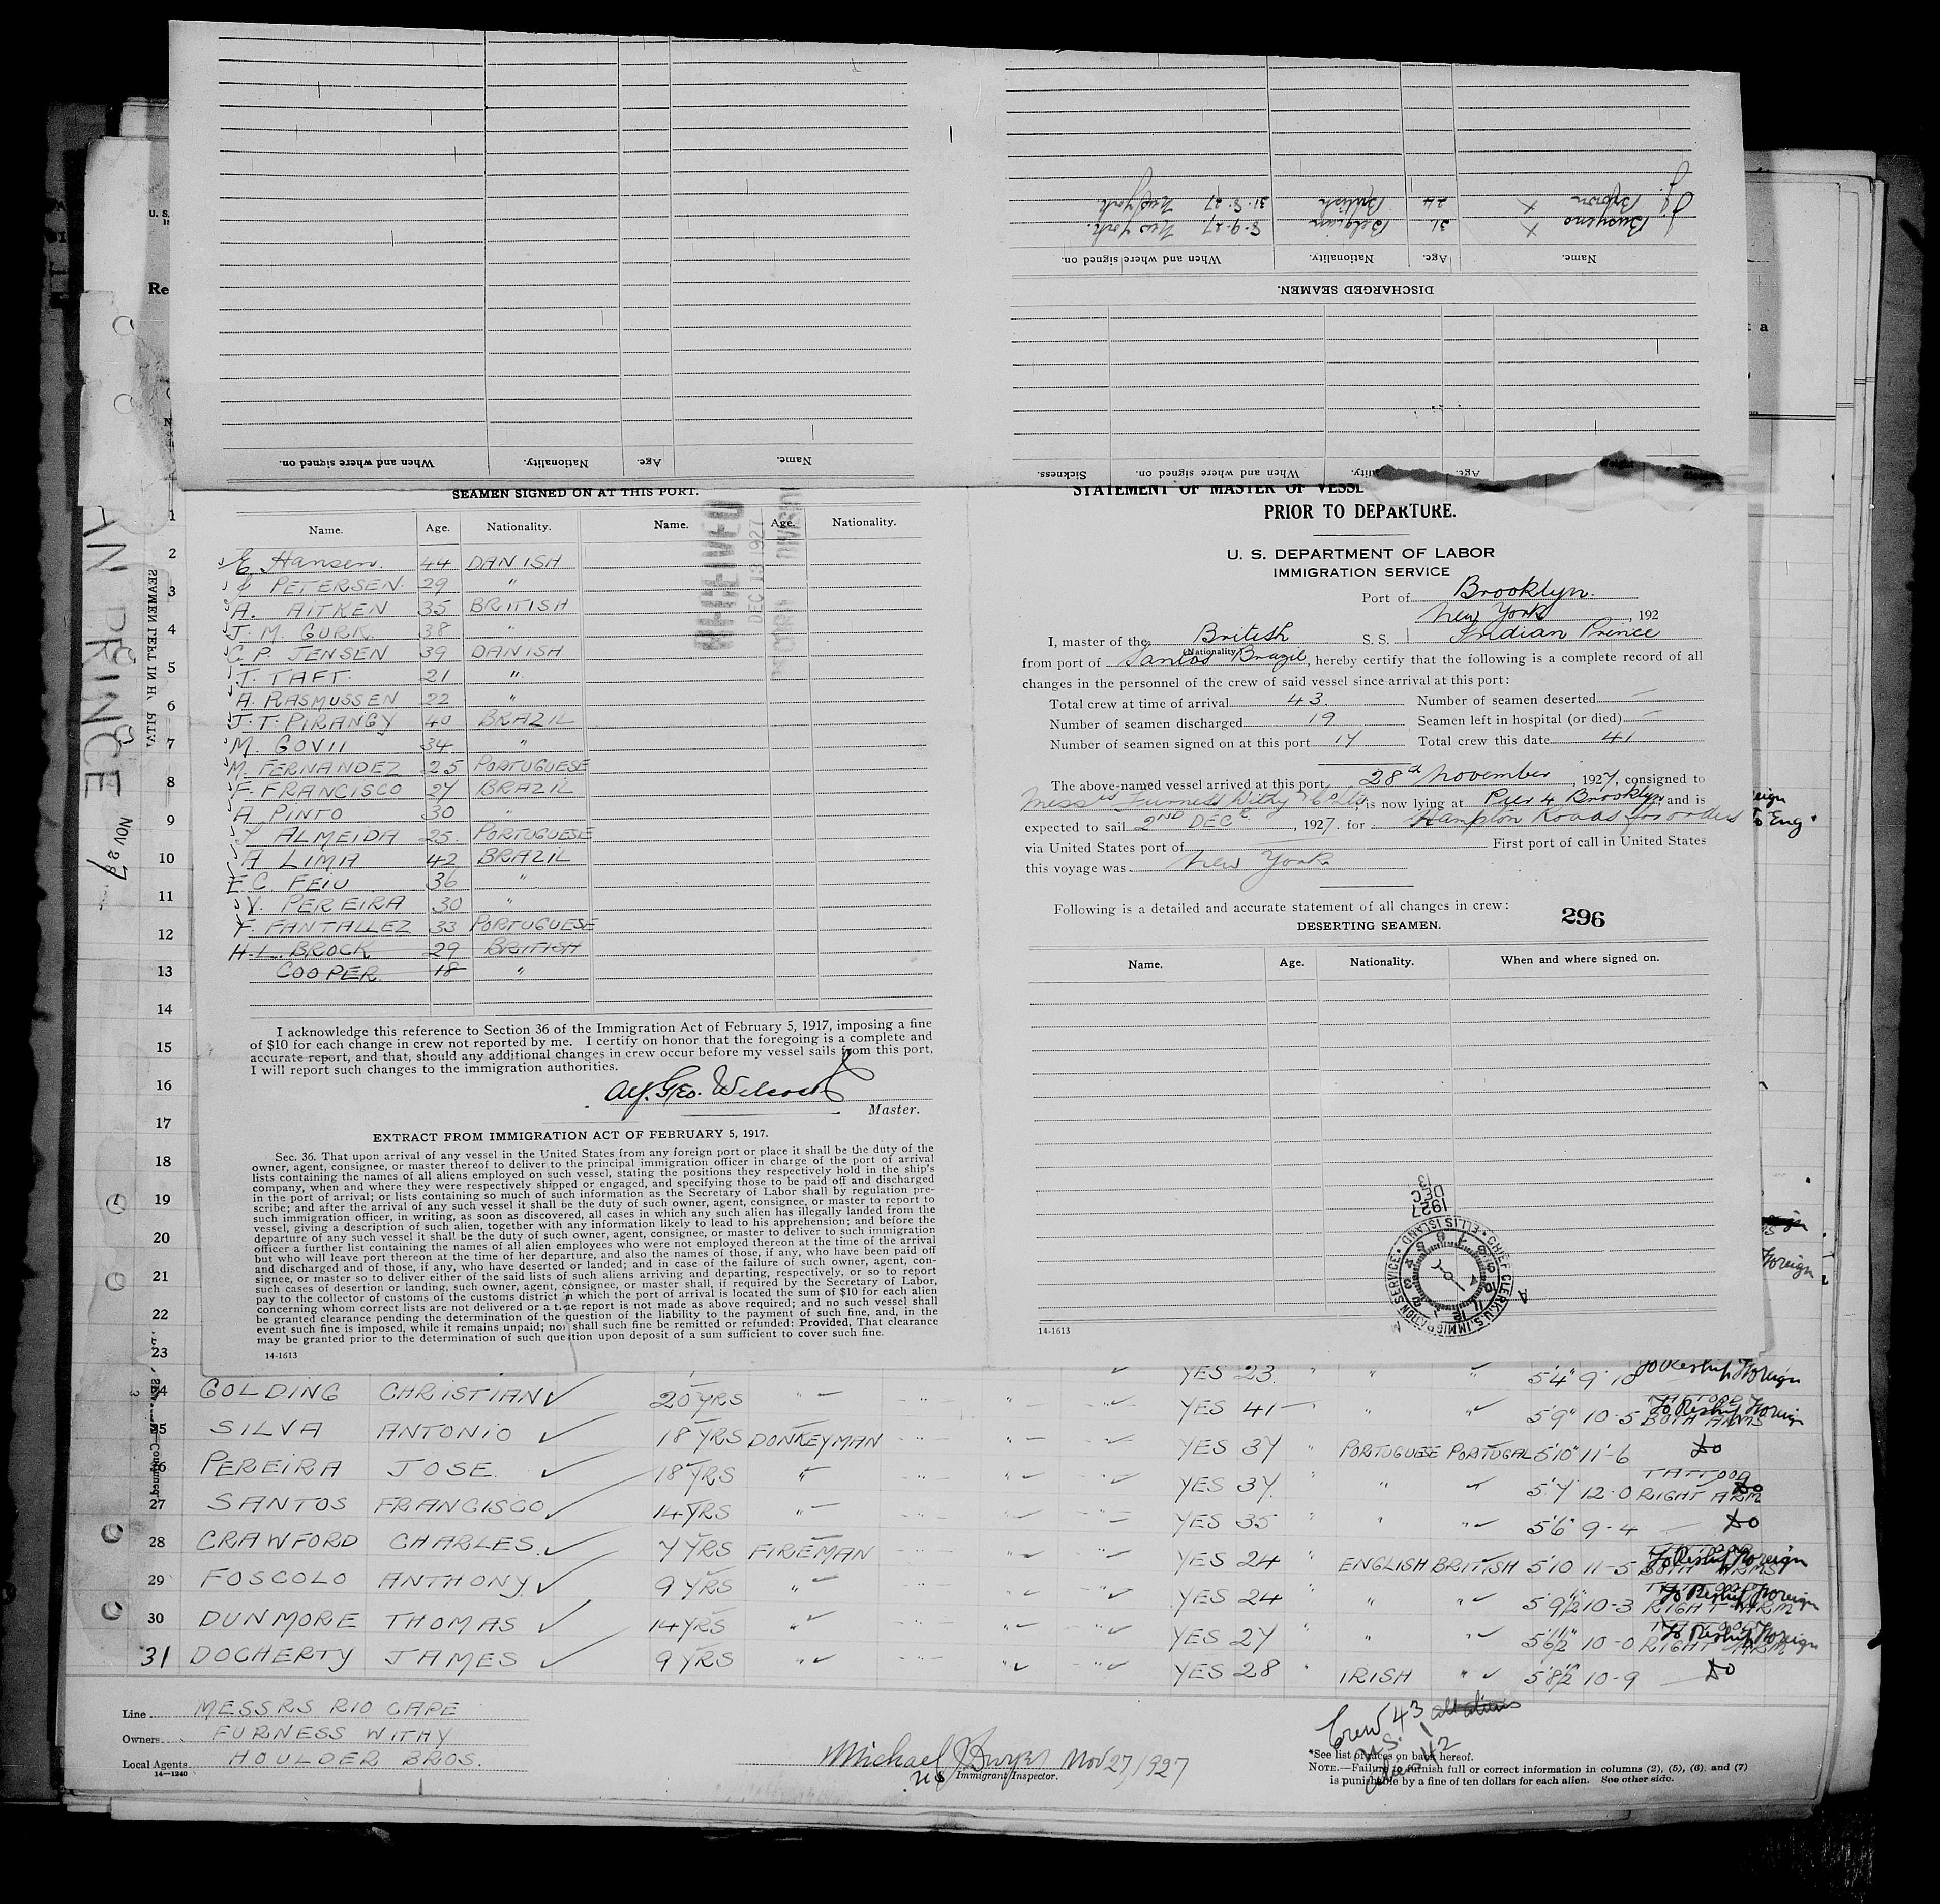 Name. Age. Nationality. When and where signed on.
J. Buoyens X 31 Belgian 8-9-27 New York.
J. Brown X 24 British 31-8-27 New York.
DISCHARGED SEAMEN.
Name. Age. Nationality. When and where signed on.
Age. When and where signed on. Sickness.
SEAMEN SIGNED ON AT THIS PORT.
Name. Age. Nationality. Name. Age. Nationality.
E. Hansen. 44 DANISH
PETERSEN. 29 "
A. AITKEN 35 BRITISH
J. M. GURK 38 "
C. P. JENSEN 39 DANISH
J. TAFT 21 "
A. RASMUSSEN 22 "
J. T. PIRANGY 40 BRAZIL
M. GOVII 34 "
M. FERNANDEZ 25 PORTUGUESE
F. FRANCISCO 27 BRAZIL
A. PINTO 30 "
ALMEIDA 25 PORTUGUESE
A LIMA 42 BRAZIL
E. C. FEIU 36 "
V. PEREIRA 30 "
F. FANTALLEZ 33 PORTUGUESE
H. L. BROCK 29 BRITISH
COOPER 18 "
DEC 13 1927
I acknowledge this reference to Section 36 of the Immigration Act of February 5, 1917, imposing a fine
of $10 for each change in crew not reported by me. I certify on honor that the foregoing is a complete and
accurate report, and that, should any additional changes in crew occur before my vessel sails from this port,
I will report such changes to the immigration authorities.
Alf. Geo. Wilcocks
Master.
EXTRACT FROM IMMIGRATION ACT OF FEBRUARY 5, 1917.
Sec. 36. That upon arrival of any vessel in the United States from any foreign port or place it shall be the duty of the
owner, agent, consignee, or master thereof to deliver to the principal immigration officer in charge of the port of arrival
lists containing the names of all aliens employed on such vessel, stating the positions they respectively hold in the ship's
company, when and where they were respectively shipped or engaged, and specifying those to be paid off and discharged
in the port of arrival; or lists containing so much of such information as the Secretary of Labor shall by regulation pre-
scribe; and after the arrival of any such vessel it shall be the duty of such owner, agent, consignee, or master to report to
such immigration officer, in writing, as soon as discovered, all cases in which any such alien has illegally landed from the
vessel, giving a description of such alien, together with any information likely to lead to his apprehension; and before the
departure of any such vessel it shall be the duty of such owner, agent, consignee, or master to deliver to such immigration
officer a further list containing the names of all alien employees who were not employed thereon at the time of the arrival
but who will leave port thereon at the time of her departure, and also the names of those, if any, who have been paid off
and discharged and of those, if any, who have deserted or landed; and in case of the failure of such owner, agent, con-
signee, or master so to deliver either of the said lists of such aliens arriving and departing, respectively, or so to report
such cases of desertion or landing, such owner, agent, consignee, or master shall, if required by the Secretary of Labor,
pay to the collector of customs of the customs district in which the port of arrival is located the sum of $10 for each alien
concerning whom correct lists are not delivered or a true report is not made as above required; and no such vessel shall
be granted clearance pending the determination of the question of the liability to the payment of such fine, and, in the
event such fine is imposed, while it remains unpaid; nor shall such fine be remitted or refunded: Provided, That clearance
may be granted prior to the determination of such question upon deposit of a sum sufficient to cover such fine.
14-1613
STATEMENT OF MASTER OF VESSEL
PRIOR TO DEPARTURE.
U. S. DEPARTMENT OF LABOR
IMMIGRATION SERVICE
Port of Brooklyn.
New York, 192
I, master of the British S. S. Indian Prince
(Nationality)
from port of Santos Brazil, hereby certify that the following is a complete record of all
changes in the personnel of the crew of said vessel since arrival at this port:
Total crew at time of arrival 43. Number of seamen deserted —
Number of seamen discharged 19 Seamen left in hospital (or died) —
Number of seamen signed on at this port 17 Total crew this date 41
The above-named vessel arrived at this port 28th November, 1927, consigned to
Messrs Furness Withy & Co Ltd is now lying at Pier 4 Brooklyn and is
expected to sail 2ND DEC, 1927. for Hampton Roads for orders
via United States port of First port of call in United States
this voyage was New York
Following is a detailed and accurate statement of all changes in crew:
296
DESERTING SEAMEN.
Name. Age. Nationality. When and where signed on.
1927 DEC 13
CHIEF CLERK, U.S. IMMIGRATION SERVICE • ELLIS ISLAND
14-1613
INDIAN PRINCE
NOV 27
YES 23 5'4" 9-10 To Reship Foreign
24 GOLDING CHRISTIAN 20 YRS YES 41 5'9" 10-5 TATTOO BOTH ARMS To Reship Foreign
25 SILVA ANTONIO 18 YRS DONKEYMAN YES 37 " PORTUGUESE PORTUGAL 5'10" 11-6 Do
26 PEREIRA JOSE 18 YRS " YES 37 5'7 12-0 TATTOO RIGHT ARM Do
27 SANTOS FRANCISCO 14 YRS " YES 35 5'6" 9-4 Do
28 CRAWFORD CHARLES 7 YRS FIREMAN YES 24 " ENGLISH BRITISH 5'10 11-5 BOTH ARMS To Reship Foreign
29 FOSCOLO ANTHONY 9 YRS " YES 24 " " 5'9½ 10-3 RIGHT ARM To Reship Foreign
30 DUNMORE THOMAS 14 YRS " YES 27 " " 5'6½ 10-0 RIGHT ARM To Reship Foreign
31 DOCHERTY JAMES 9 YRS " YES 28 " IRISH " 5'8½ 10-9 Do
Line MESSRS RIO CAPE
Owners FURNESS WITHY
Local Agents HOULDER BROS.
14—1240
Michael J Dwyer Nov 27/1927
Immigrant Inspector.
Crew 43 all aliens
U.S. 1
Aliens 42
*See list of races on back hereof.
NOTE.—Failure to furnish full or correct information in columns (2), (5), (6), and (7)
is punishable by a fine of ten dollars for each alien. See other side.